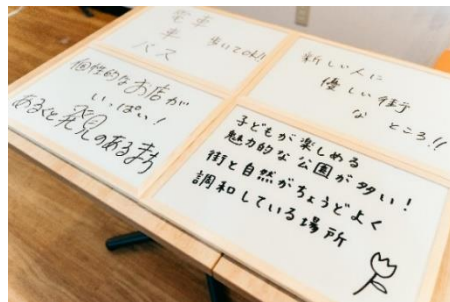 電車
車
バス
歩いてOK!!
新しい人に
優しい様子
な ところ!!
個性的なお店が
いっぱい!
あると発見のあるまち
子どもが楽しめる
魅力的な公園が多い!
街と自然がちょうどよく
調和している場所